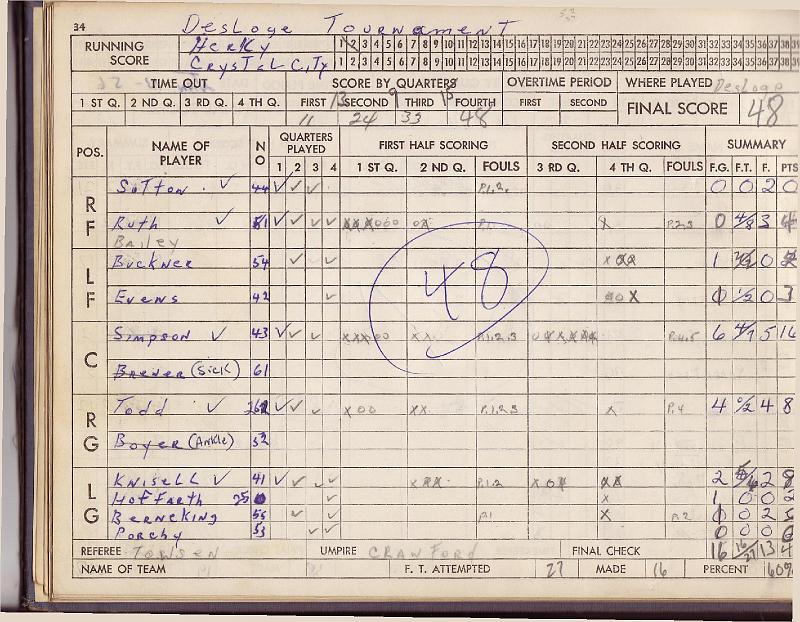 34
Desloge Tournament
RUNNING SCORE
Herky 1 2 3 4 5 6 7 8 9 10 11 12 13 14 15 16 17 18 19 20 21 22 23 24 25 26 27 28 29 30 31 32 33 34 35 36 37 38 39
Crystal City 1 2 3 4 5 6 7 8 9 10 11 12 13 14 15 16 17 18 19 20 21 22 23 24 25 26 27 28 29 30 31 32 33 34 35 36 37 38 39
TIME OUT SCORE BY QUARTERS OVERTIME PERIOD WHERE PLAYED Desloge
1 ST Q. 2 ND Q. 3 RD Q. 4 TH Q. FIRST 13 SECOND 9 THIRD 15 FOURTH FIRST SECOND FINAL SCORE 48
11 24 33 48
POS. NAME OF PLAYER NO QUARTERS PLAYED FIRST HALF SCORING SECOND HALF SCORING SUMMARY
1 2 3 4 1 ST Q. 2 ND Q. FOULS 3 RD Q. 4 TH Q. FOULS F.G. F.T. F. PTS
RF Sutton 44 P.1.2. 0 0 2 0
Ruth 51 xxxooo ox P.1 x P.2.3 0 4/8 3 4
Bailey
LF Buckner 54 1 0
Evens 42 0 1/2 0 3
48
C Simpson 43 xxxoo xx P.1.2.3 P.4.5 6 4/7 5 16
Brewer (Sick) 61
RG Todd xoo xx P.1.2.3 x P.4 4 0/2 4 8
Boyer (Ankle) 52
LG Knisell 41 xxx P.1.2 xox xx 2 2 8
Hoffarth 25 x 1 0 0 2
Berneking 55 P1 x P.2 0 0 2
Porchy 53 0 0 0 0
REFEREE Towsen UMPIRE Crawford FINAL CHECK 16 16/27 13 4
NAME OF TEAM F. T. ATTEMPTED 27 MADE 16 PERCENT 60%